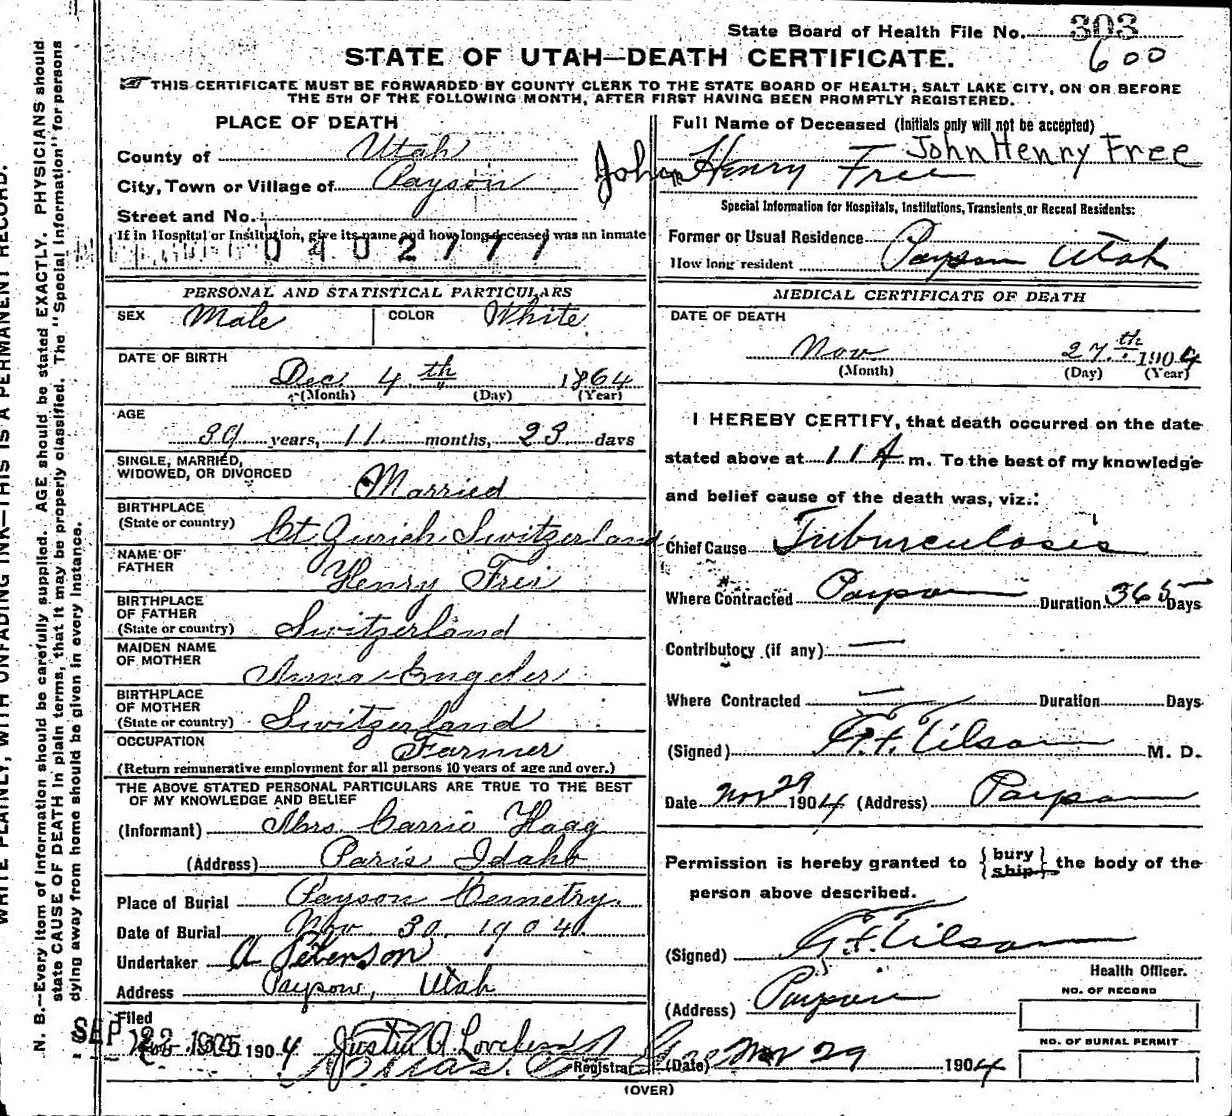 State Board of Health File No. 303
600
STATE OF UTAH—DEATH CERTIFICATE.
THIS CERTIFICATE MUST BE FORWARDED BY COUNTY CLERK TO THE STATE BOARD OF HEALTH, SALT LAKE CITY, ON OR BEFORE
THE 5TH OF THE FOLLOWING MONTH, AFTER FIRST HAVING BEEN PROMPTLY REGISTERED.
PLACE OF DEATH
County of Utah
City, Town or Village of Payson
Street and No.
If in Hospital or Institution, give its name and how long deceased was an inmate
0402777
PERSONAL AND STATISTICAL PARTICULARS
SEX Male COLOR White
DATE OF BIRTH
Dec 4th 1864
(Month) (Day) (Year)
AGE
39 years, 11 months, 23 days
SINGLE, MARRIED,
WIDOWED, OR DIVORCED
Married
BIRTHPLACE
(State or country) Ct Zurich Switzerland
NAME OF
FATHER Henry Frei
BIRTHPLACE
OF FATHER
(State or country) Switzerland
MAIDEN NAME
OF MOTHER Anna Engeler
BIRTHPLACE
OF MOTHER
(State or country) Switzerland
OCCUPATION Farmer
(Return remunerative employment for all persons 10 years of age and over.)
THE ABOVE STATED PERSONAL PARTICULARS ARE TRUE TO THE BEST
OF MY KNOWLEDGE AND BELIEF
(Informant) Mrs Carrie Haag
(Address) Paris Idaho
Place of Burial Payson Cemetry.
Date of Burial Nov. 30, 1904.
Undertaker A Peterson
Address Payson, Utah
Filed
SEP 22 1905 1904 Justin A Loveless
Registrar
Full Name of Deceased (Initials only will not be accepted)
John Henry Free
John Henry Free
Special Information for Hospitals, Institutions, Transients or Recent Residents:
Former or Usual Residence Payson Utah
How long resident
MEDICAL CERTIFICATE OF DEATH
DATE OF DEATH
Nov 27th 1904
(Month) (Day) (Year)
I HEREBY CERTIFY, that death occurred on the date
stated above at 11 A m. To the best of my knowledge
and belief cause of the death was, viz.:
Chief Cause Tuburculosis
Where Contracted Payson Duration 365 Days
Contributory (if any) —
Where Contracted — Duration Days
(Signed) G.F. Tilson M. D.
Date Nov 29 1904 (Address) Payson
Permission is hereby granted to {bury ship} the body of the
person above described.
(Signed) G.F. Tilson
Health Officer.
(Address) Payson
NO. OF RECORD
NO. OF BURIAL PERMIT
(Date) Nov 29 1904
(OVER)
WRITE PLAINLY, WITH UNFADING INK—THIS IS A PERMANENT RECORD.
N. B.—Every item of information should be carefully supplied. AGE should be stated EXACTLY. PHYSICIANS should
state CAUSE OF DEATH in plain terms, that it may be properly classified. The "Special Information" for persons
dying away from home should be given in every instance.